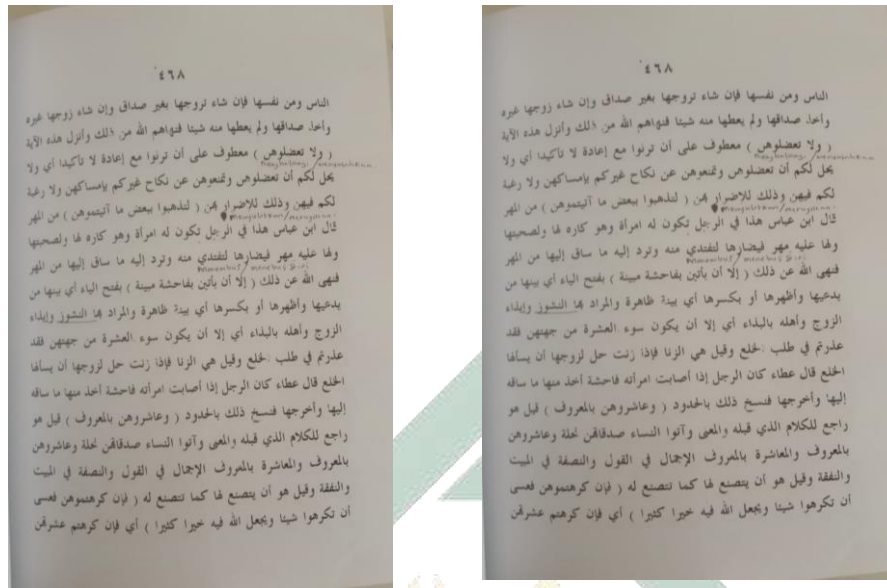 ٤٦٨
الناس ومن نفسها فإن شاء تروجها بغير صداق وإن شاء زوجها غيره
وأخذ صداقها ولم يعطها منه شيئا فنهاهم الله من ذلك وأنزل هذه الآية
( ولا تعضلوهن ) معطوف على أن ترثوا مع إعادة لا تأكيدا أي ولا
يحل لكم أن تعضلوهن وتمنعوهن عن نكاح غيركم بإمساكهن ولا رغبة
لكم فيهن وذلك للإضرار بهن ( لتذهبوا ببعض ما آتيتموهن ) من المهر
قال ابن عباس هذا في الرجل تكون له امرأة وهو كاره لها ولصحبتها
ولها عليه مهر فيضارها لتفتدي منه وترد إليه ما ساق إليها من المهر
فنهى الله عن ذلك ( إلا أن يأتين بفاحشة مبينة ) بفتح الياء أي بينها من
يدعيها وأظهرها أو بكسرها أي بينة ظاهرة والمراد بها النشوز وإيذاء
الزوج وأهله بالبذاء أي إلا أن يكون سوء العشرة من جهتهن فقد
عذرتم في طلب الخلع وقيل هي الزنا فإذا زنت حل لزوجها أن يسألها
الخلع قال عطاء كان الرجل إذا أصابت امرأته فاحشة أخذ منها ما ساقه
إليها وأخرجها فنسخ ذلك بالحدود ( وعاشروهن بالمعروف ) قيل هو
راجع للكلام الذي قبله والمعى وآتوا النساء صدقاتهن نحلة وعاشروهن
بالمعروف والمعاشرة بالمعروف الإجمال في القول والنصفة في المبيت
والنفقة وقيل هو أن يتصنع لها كما تتصنع له ( فإن كرهتموهن فعسى
أن تكرهوا شيئا ويجعل الله فيه خيرا كثيرا ) أي فإن كرهتم عشرتهن
٤٦٨
الناس ومن نفسها فإن شاء تروجها بغير صداق وإن شاء زوجها غيره
وأخذ صداقها ولم يعطها منه شيئا فنهاهم الله من ذلك وأنزل هذه الآية
( ولا تعضلوهن ) معطوف على أن ترثوا مع إعادة لا تأكيدا أي ولا
يحل لكم أن تعضلوهن وتمنعوهن عن نكاح غيركم بإمساكهن ولا رغبة
لكم فيهن وذلك للإضرار بهن ( لتذهبوا ببعض ما آتيتموهن ) من المهر
قال ابن عباس هذا في الرجل تكون له امرأة وهو كاره لها ولصحبتها
ولها عليه مهر فيضارها لتفتدي منه وترد إليه ما ساق إليها من المهر
فنهى الله عن ذلك ( إلا أن يأتين بفاحشة مبينة ) بفتح الياء أي بينها من
يدعيها وأظهرها أو بكسرها أي بينة ظاهرة والمراد بها النشوز وإيذاء
الزوج وأهله بالبذاء أي إلا أن يكون سوء العشرة من جهتهن فقد
عذرتم في طلب الخلع وقيل هي الزنا فإذا زنت حل لزوجها أن يسألها
الخلع قال عطاء كان الرجل إذا أصابت امرأته فاحشة أخذ منها ما ساقه
إليها وأخرجها فنسخ ذلك بالحدود ( وعاشروهن بالمعروف ) قيل هو
راجع للكلام الذي قبله والمعى وآتوا النساء صدقاتهن نحلة وعاشروهن
بالمعروف والمعاشرة بالمعروف الإجمال في القول والنصفة في المبيت
والنفقة وقيل هو أن يتصنع لها كما تتصنع له ( فإن كرهتموهن فعسى
أن تكرهوا شيئا ويجعل الله فيه خيرا كثيرا ) أي فإن كرهتم عشرتهن